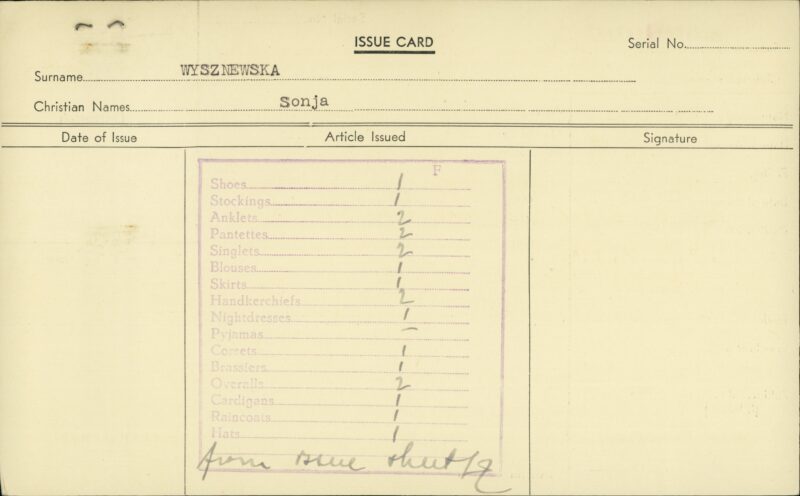 ISSUE CARD
Serial No.
Surname WYSZNEWSKA
Christian Names Sonja
Date of Issue Article Issued Signature
F
Shoes 1
Stockings 1
Anklets 2
Pantettes 2
Singlets 2
Blouses 1
Skirts 1
Handkerchiefs 2
Nightdresses 1
Pyjamas –
Corsets 1
Brassiers 1
Overalls 2
Cardigans 1
Raincoats 1
Hats 1
from issue sheet